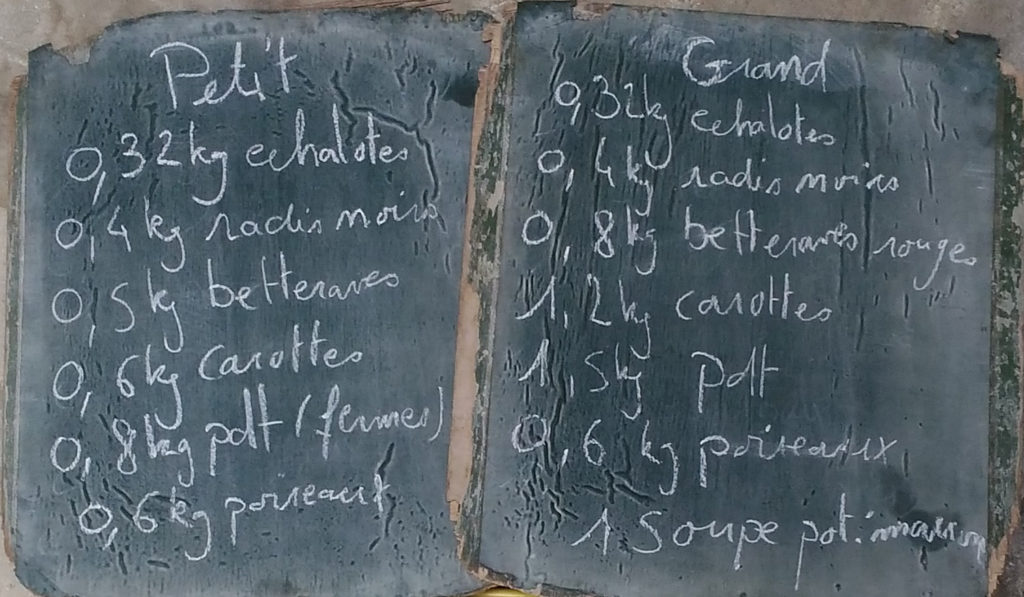 Petit
0,32kg echalotes
0,4kg radis noirs
0,5kg betteraves
0,6kg carottes
0,8kg pdt (fermes)
0,6kg poireaux
Grand
0,32kg echalotes
0,4kg radis noirs
0,8kg betteraves rouges
1,2kg carottes
1,5kg pdt
0,6 kg poireaux
1 Soupe potimarron